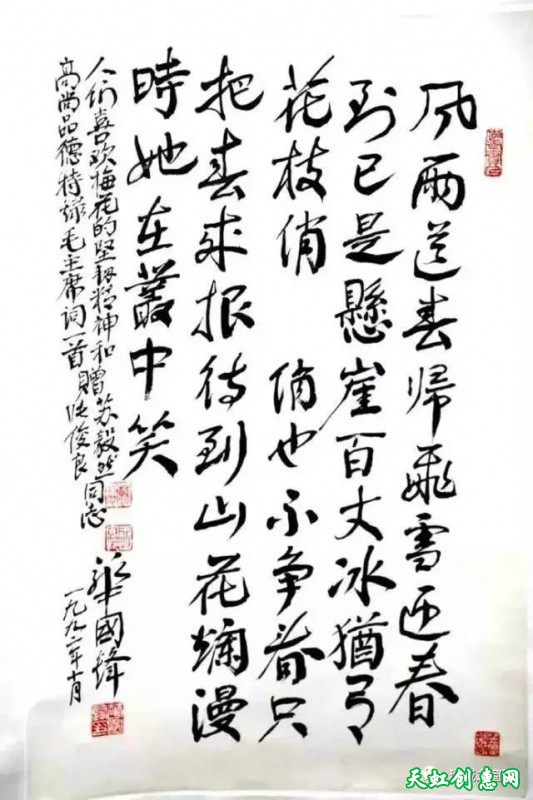 风雨送春归飛雪迎春
到已是懸崖百丈冰猶有
花枝俏 俏也不争春只
把春来报待到山花爛漫
時她在叢中笑
人们喜欢梅花的坚韧精神和赠苏毅然同志
高尚品德特録毛主席词一首赠张俊良
華國锋
一九九二年十月
天虹创惠网